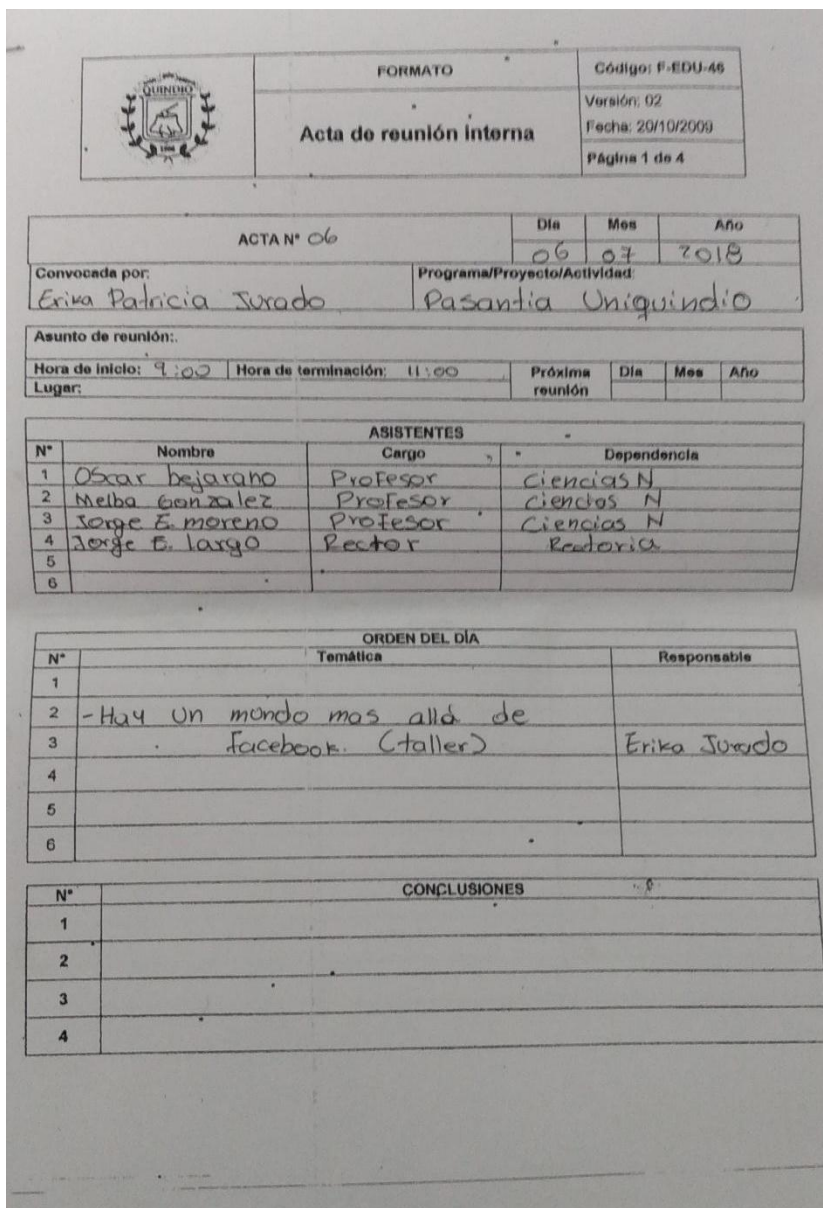 QUINDIO
FORMATO
Código: F-EDU-46
Acta de reunión interna
Versión: 02
Fecha: 20/10/2009
Página 1 de 4
ACTA N° 06
Día Mes Año
06 07 2018
Convocada por: Programa/Proyecto/Actividad:
Erika Patricia Jurado Pasantia Uniquindio
Asunto de reunión:.
Hora de inicio: 9:00 Hora de terminación: 11:00 Próxima reunión Día Mes Año
Lugar:
ASISTENTES
N° Nombre Cargo Dependencia
1 Oscar bejarano Profesor Ciencias N
2 Melba Gonzalez Profesor Ciencias N
3 Jorge E. moreno Profesor Ciencias N
4 Jorge E. largo Rector Rectoria
5
6
ORDEN DEL DÍA
N° Temática Responsable
1
2 - Hay un mundo mas allá de
3 facebook. (taller) Erika Jurado
4
5
6
N° CONCLUSIONES
1
2
3
4